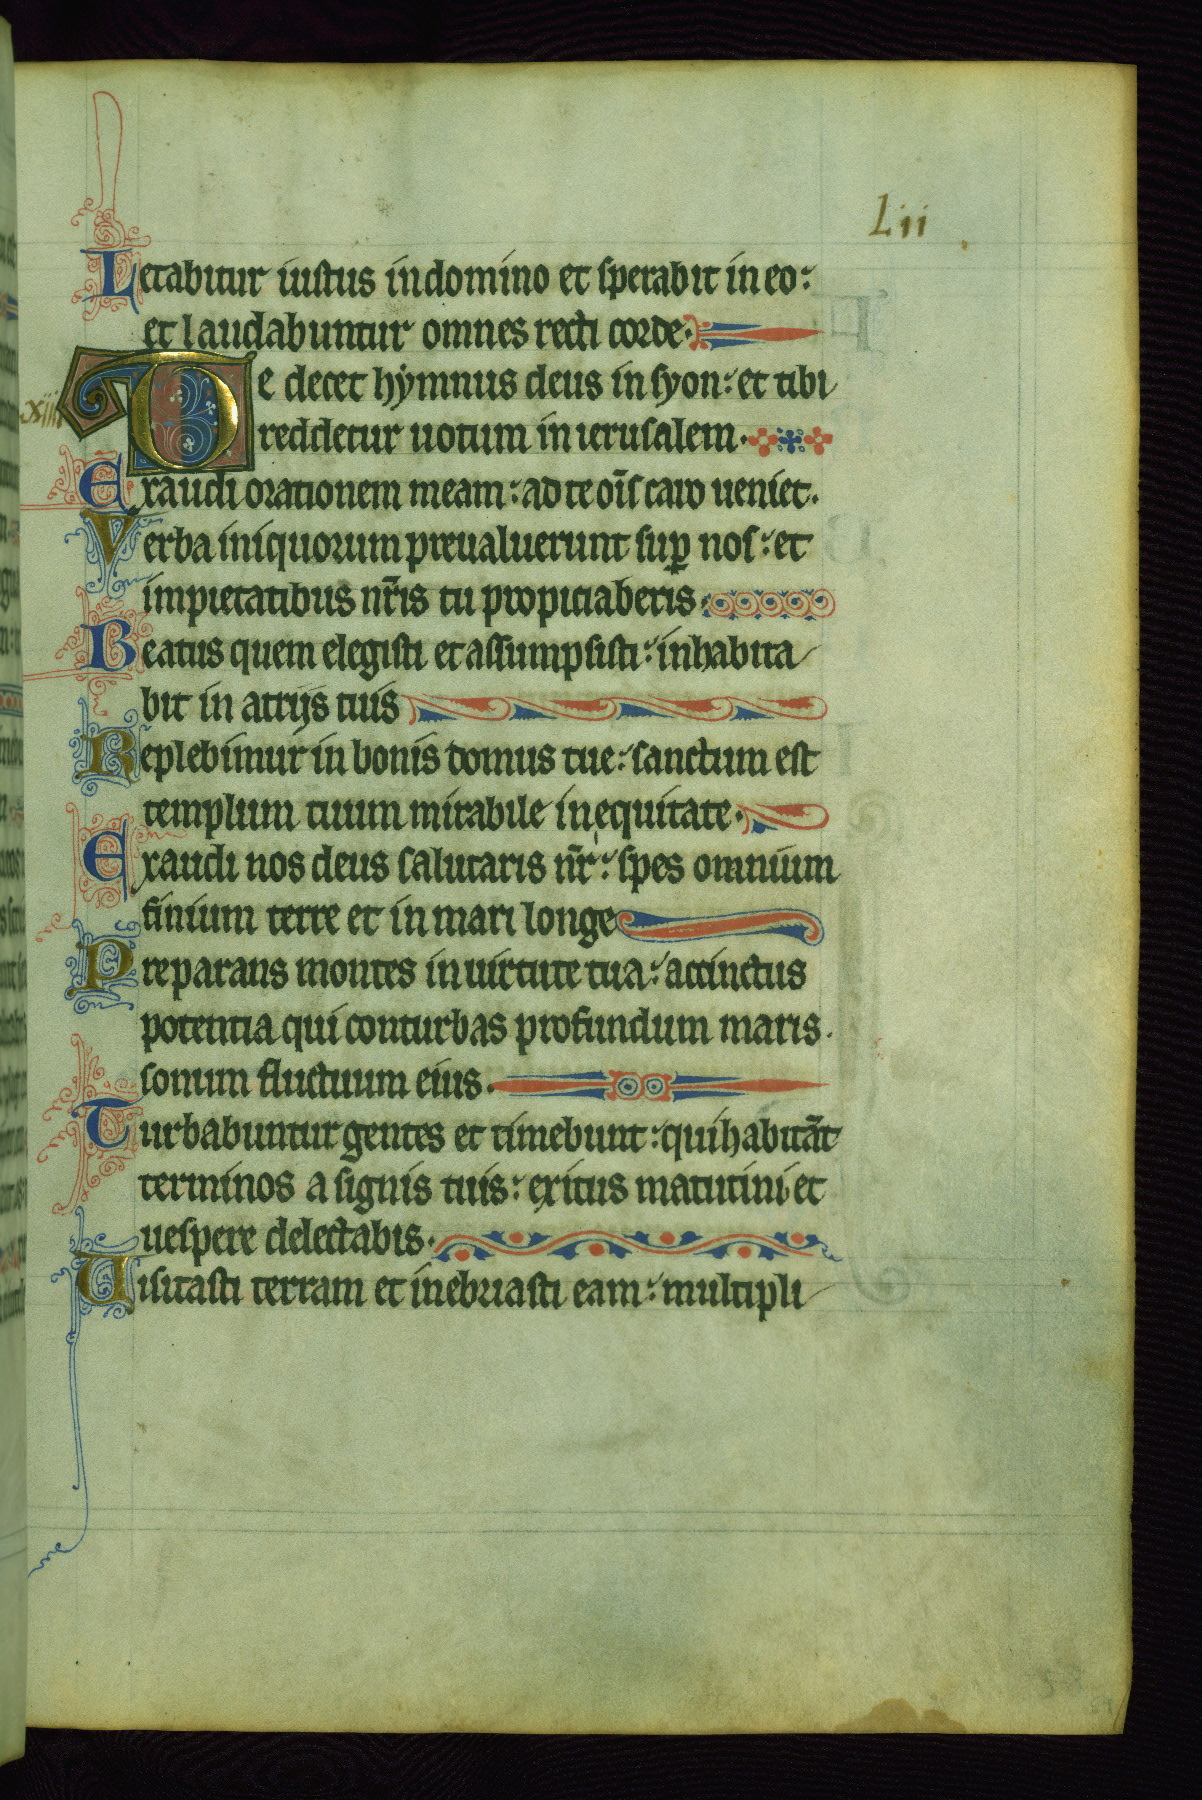 Lii
Letabitur iustus in domino et sperabit in eo:
et laudabuntur omnes recti corde.
xiii
Te decet hymnus deus in syon: et tibi
reddetur uotum in ierusalem.
Exaudi orationem meam: ad te oīs caro ueniet.
Verba iniquorum preualuerunt sup̱ nos: et
impietatibus nr̄is tu propiciaberis.
Beatus quem elegisti et assumpsisti: inhabita
bit in atrijs tuis
Replebimur in bonis domus tue: sanctum est
templum tuum mirabile in equitate.
Exaudi nos deus salutaris nr̄: spes omnium
finium terre et in mari longe
Preparans montes in uirtute tua: accinctus
potentia qui conturbas profundum maris.
sonum fluctuum eius.
Turbabuntur gentes et timebunt: qui habitāt
terminos a signis tuis: exitus matutini et
uespere delectabis.
Uisitasti terram et inebriasti eam: multipli